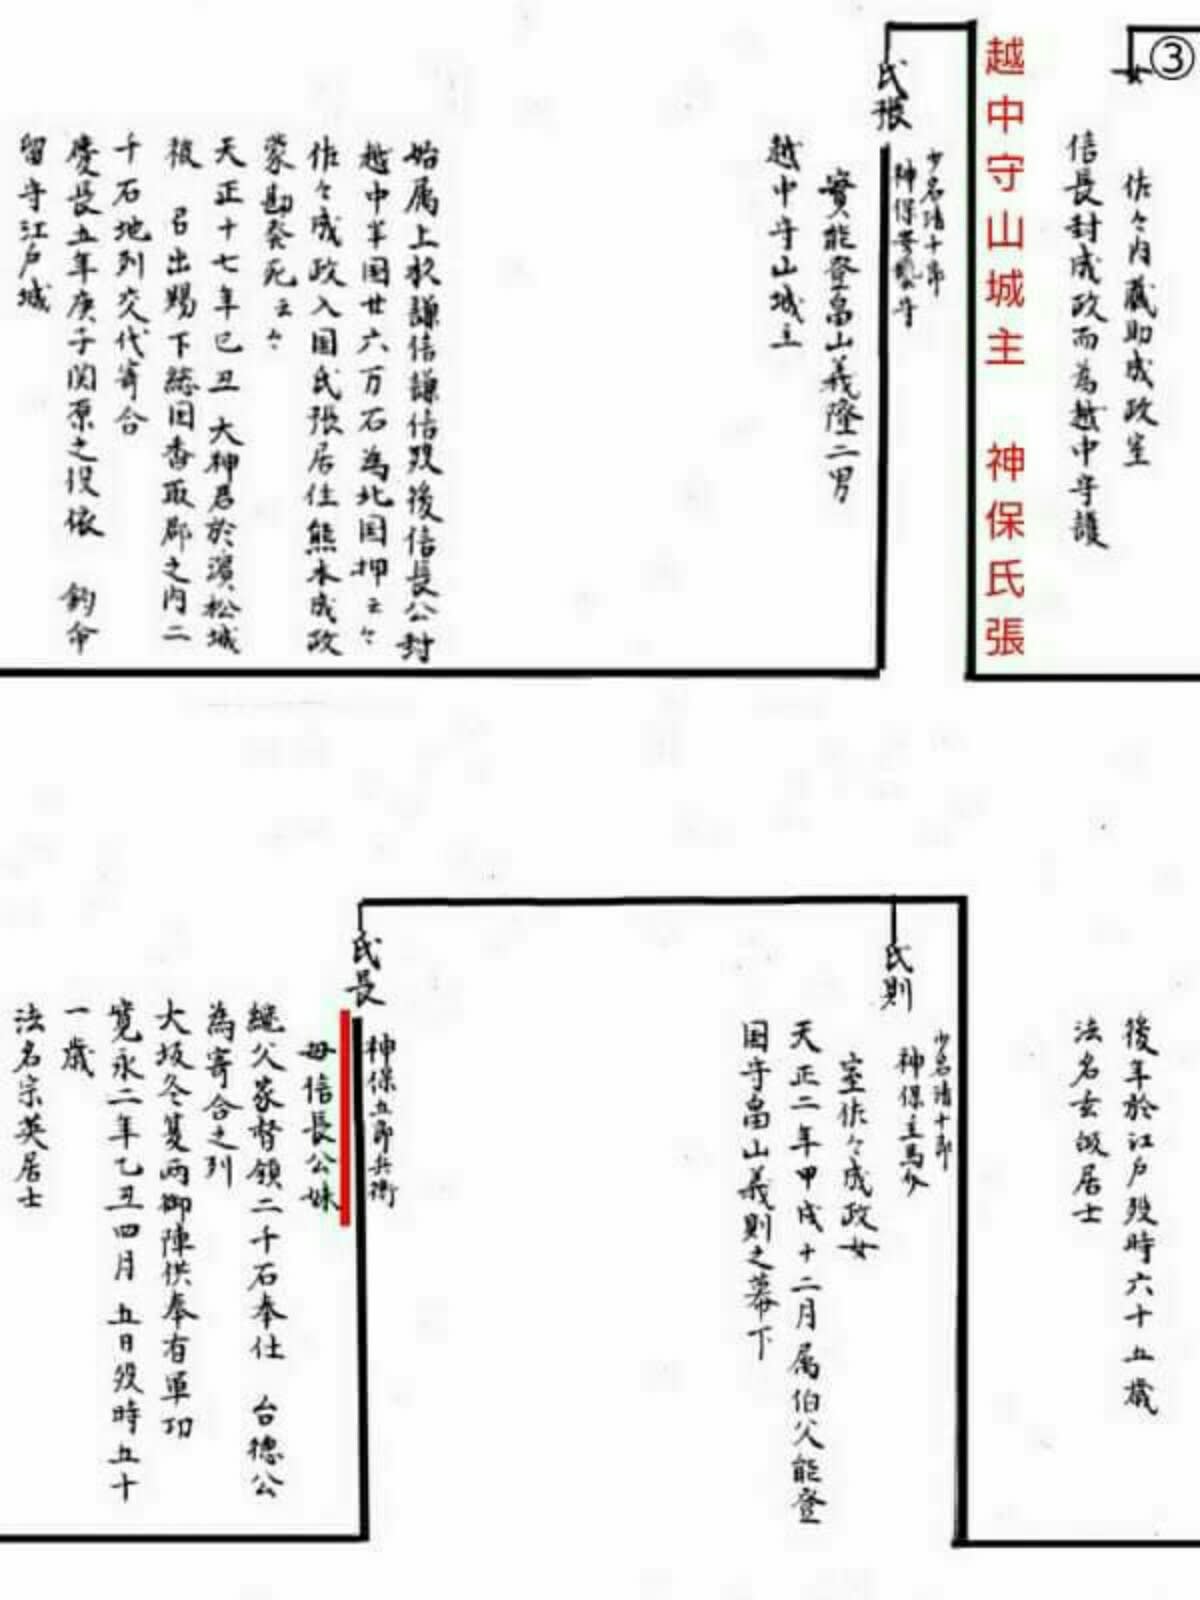 ③
女
佐々内蔵助成政室
信長封成政而為越中守護
越中守山城主　神保氏張
氏張
少名清十郎
神保安藝守
實能登畠山義隆二男
越中守山城主
始属上杉謙信謙信歿後信長公封
越中半国廿六万石為北国押云々
佐々成政入国氏張居住熊本成政
蒙勘発死云々
天正十七年己丑　大神君於濱松城
被　召出賜下総国香取郡之内二
千石地列交代寄合
慶長五年庚子関原之役依　鈞命
留守江戸城
後年於江戸歿時六十五歳
法名玄
居士
氏則
少名清十郎
神保主馬介
室佐々成政女
天正二年甲戌十二月属伯父能登
国守畠山義則之幕下
氏長
神保五郎兵衛
母信長公妹
継父家督領二千石奉仕　台徳公
為寄合之列
大坂冬夏両御陣供奉有軍功
寛永二年乙丑四月五日歿時五十
一歳
法名宗英居士